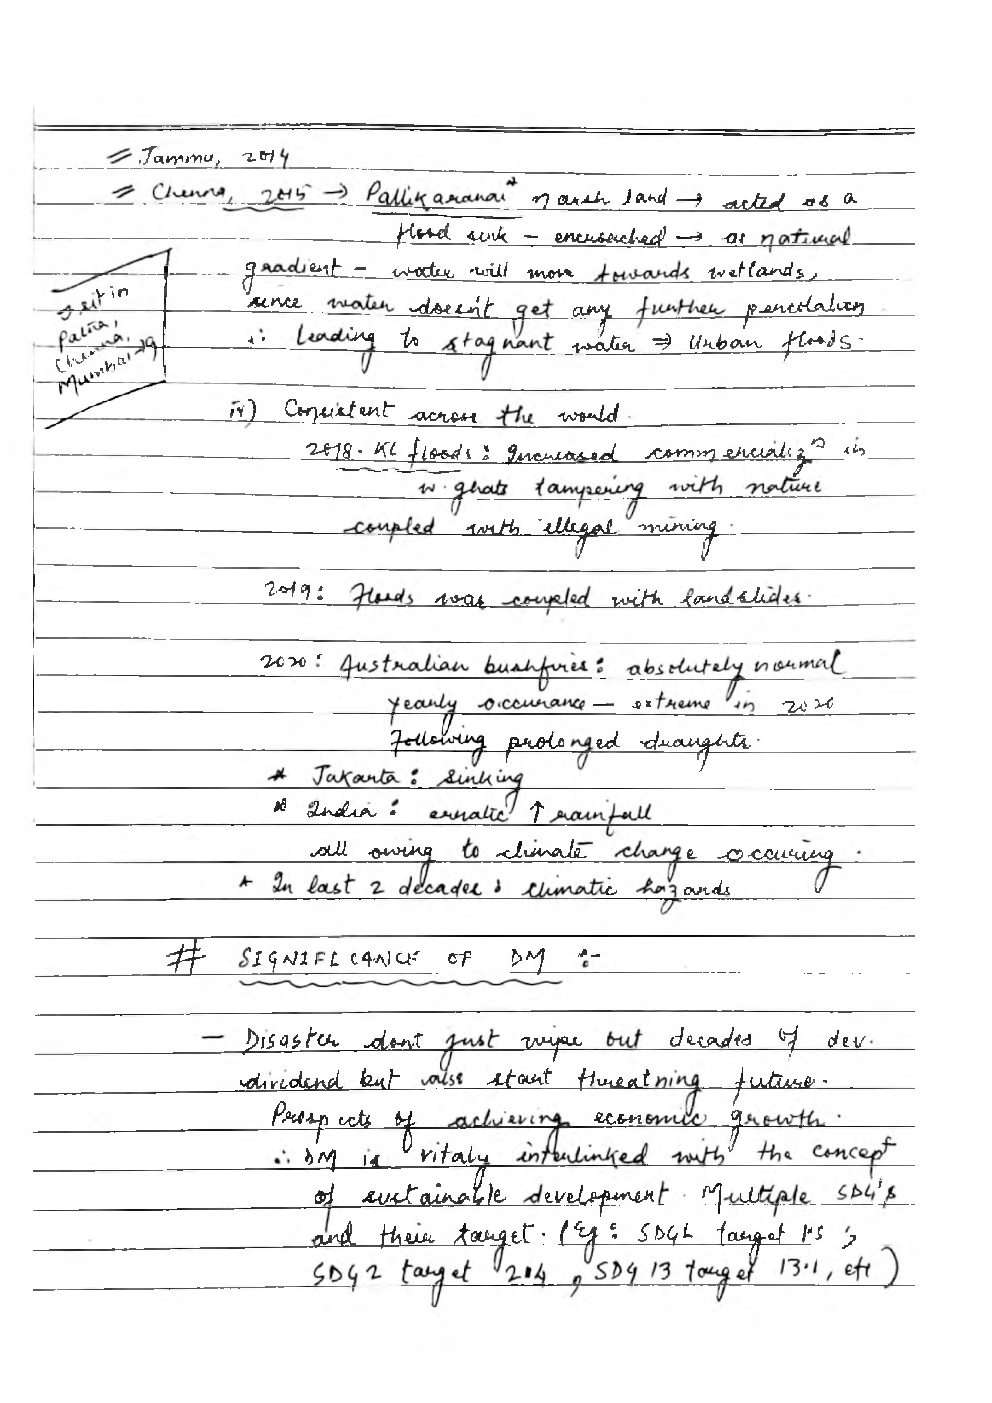 ⇒ Jammu, 2014
⇒ Chenna, 2015 → Pallikaranai* marsh land → acted as a
flood sink - encroached → as natural
gradient - water will move towards wetlands,
since water doesn't get any further percolation
∴ leading to stagnant water ⇒ Urban floods.
→ eit in
Patna,
Chenna,
Mumbai → 19
iv) Consistent across the world.
2018. KL floods : Increased commercializⁿ in
w. ghats tampering with nature
coupled with illegal mining.
2019: Floods was coupled with landslides.
2020: Australian bushfires: absolutely normal
yearly occurance — extreme in 2020
following prolonged draughts.
* Jakarta : sinking
* India : erratic ↑ rainfall
all owing to climate change occuring.
* In last 2 decades : climatic hazards
# SIGNIFICANCE OF DM :-
— Disaster dont just wipe out decades of dev.
dividend but also start threatning future.
Prospects of achieving economic growth.
∴ DM is vitaly interlinked with the concept
of sustainable development. Multiple SDG's
and their target. (Eg: SDG1 target 1.5 ;
SDG 2 target 2.4 , SDG 13 target 13.1, etc)